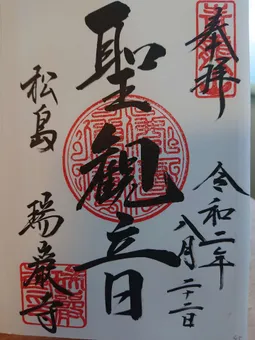 奉拝
令和二年
八月二十二日
聖觀音
松島 瑞巌寺